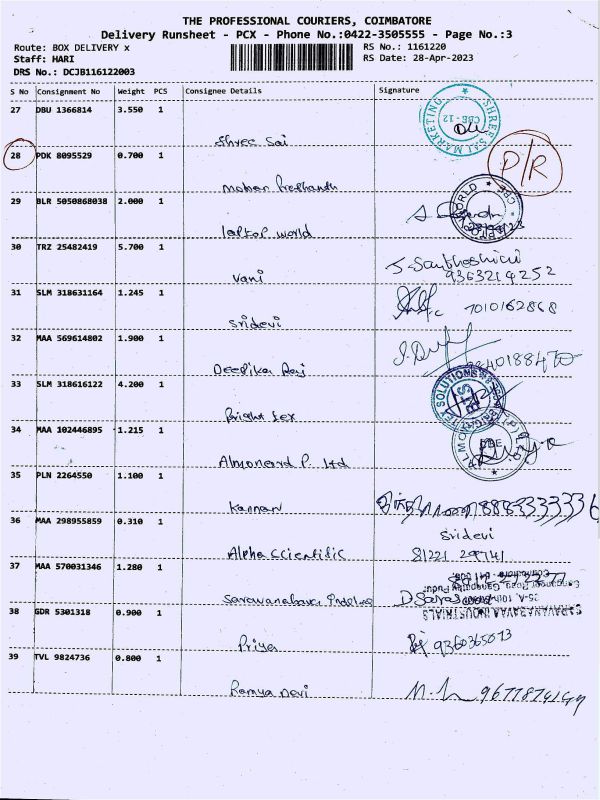 THE PROFESSIONAL COURIERS, COIMBATORE
Delivery Runsheet - PCX - Phone No.:0422-3505555 - Page No.:3
Route: BOX DELIVERY x RS No.: 1161220
Staff: HARI RS Date: 28-Apr-2023
DRS No.: DCJB116122003
S No Consignment No Weight PCS Consignee Details Signature
27 DBU 1366814 3.550 1
Shree Sai SHREE SAI MARKETING CBE-12
28 PDK 8095529 0.700 1 P/R
Mohan Prashanth
29 BLR 5050868038 2.000 1
laptop world
30 TRZ 25482419 5.700 1 J-Santhoshini
Vani 9363214252
31 SLM 318631164 1.245 1
Sridevi 7010162868
32 MAA 569614802 1.900 1
Deepika
33 SLM 318616122 4.200 1 SOLUTIONS
Bright
34 MAA 102446895 1.215 1
Almonard P. Ltd CBE
35 PLN 2264550 1.100 1
Kannan
36 MAA 298955859 0.310 1 Sridevi
Alpha Scientific 81221 29741
37 MAA 570031346 1.280 1
38 GDR 5301318 0.900 1
Priya 9360365013
39 TVL 9824736 0.800 1
Ramya Devi